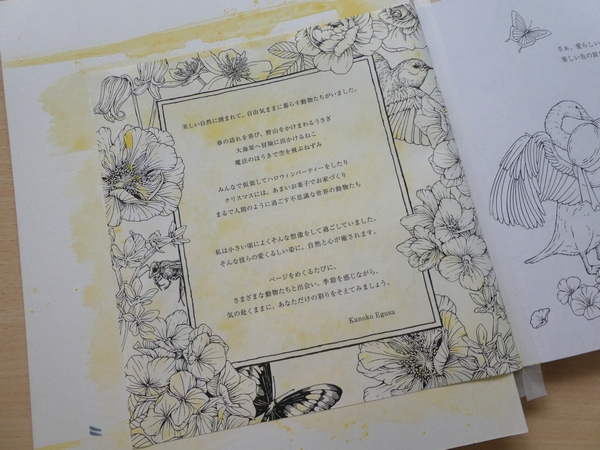 美しい自然に囲まれて、自由気ままに暮らす動物たちがいました。
春の訪れを喜び、野山をかけまわるうさぎ
大海原へ冒険に出かけるねこ
魔法のほうきで空を飛ぶねずみ
みんなで仮装してハロウィンパーティーをしたり
クリスマスには、あまいお菓子でお家づくり
まるで人間のように過ごす不思議な世界の動物たち
私は小さい頃によくそんな想像をして過ごしていました。
そんな彼らの愛くるしい姿に、自然と心が癒されます。
ページをめくるたびに、
さまざまな動物たちと出会い、季節を感じながら、
気の赴くままに、あなただけの彩りをそえてみましょう。
Kanoko Egusa
さあ、愛らしい
楽しい色の旅